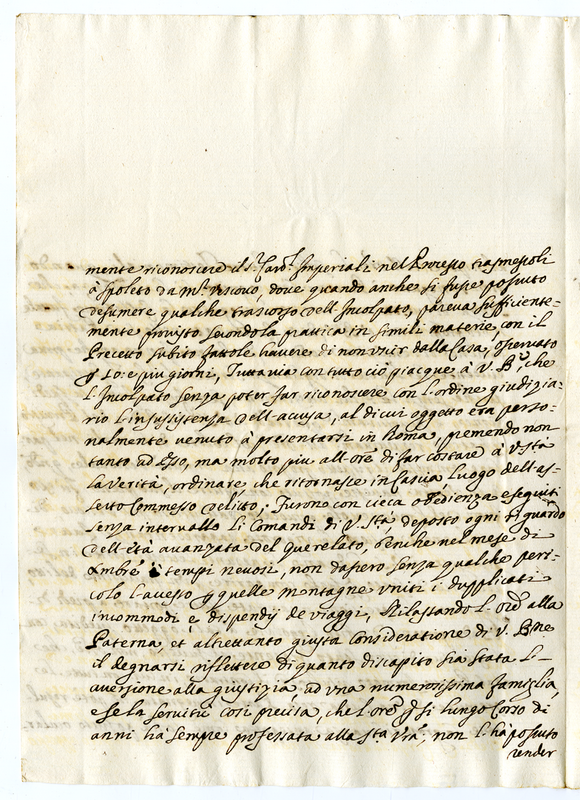 mente riconoscere il s.r Card.l Imperiali nel Processo trasmessoli
à Spoleto da M.r Vescovo, dove quando anche si fusse possuto
desumere qualche trascorso dell'Inculpato, pareva sufficiente-
mente provisto secondo la prattica in simili materie con il
Precetto subito fattole havere di non uscir dalla Casa, osservato
p 40: e più giorni, Tuttavia con tutto ciò piacque à V. B.ne, che
l'Inculpato senza poter far riconoscere con l'ordine giudizia-
rio l'insussistenza dell'accusa, al di cui oggetto era perso-
nalmente venuto à presentarsi in Roma, premendo non
tanto ad esso, ma molto più all'Ore di far costare à V. Stà
la verità, ordinare, che ritornasse in Cascia, luogo dell'as-
serto Commesso delitto, furono con cieca obedienza eseguiti
senza intervallo li Comandi di V. Stà, deposto ogni riguardo
dell'età avanzata del querelato, benche nel mese di
Xmbre è tempi nevosi, non da[...] senza qualche peri-
colo l'accesso p quelle montagne uniti i dupplicati
incommodi è dispendij de viaggi, Rilassando l'Ore alla
Paterna, et altrettanto giusta Consideratione di V. Bne
il degnarsi riflettere di quanto discapito sia stata l'-
aversione alla giustizia ad una numerosissima famiglia,
e se la servitù così precisa, che l'Ore p si lungo Corso di
anni hà sempre professata alla Stà Vra, non l'hà possuto
render